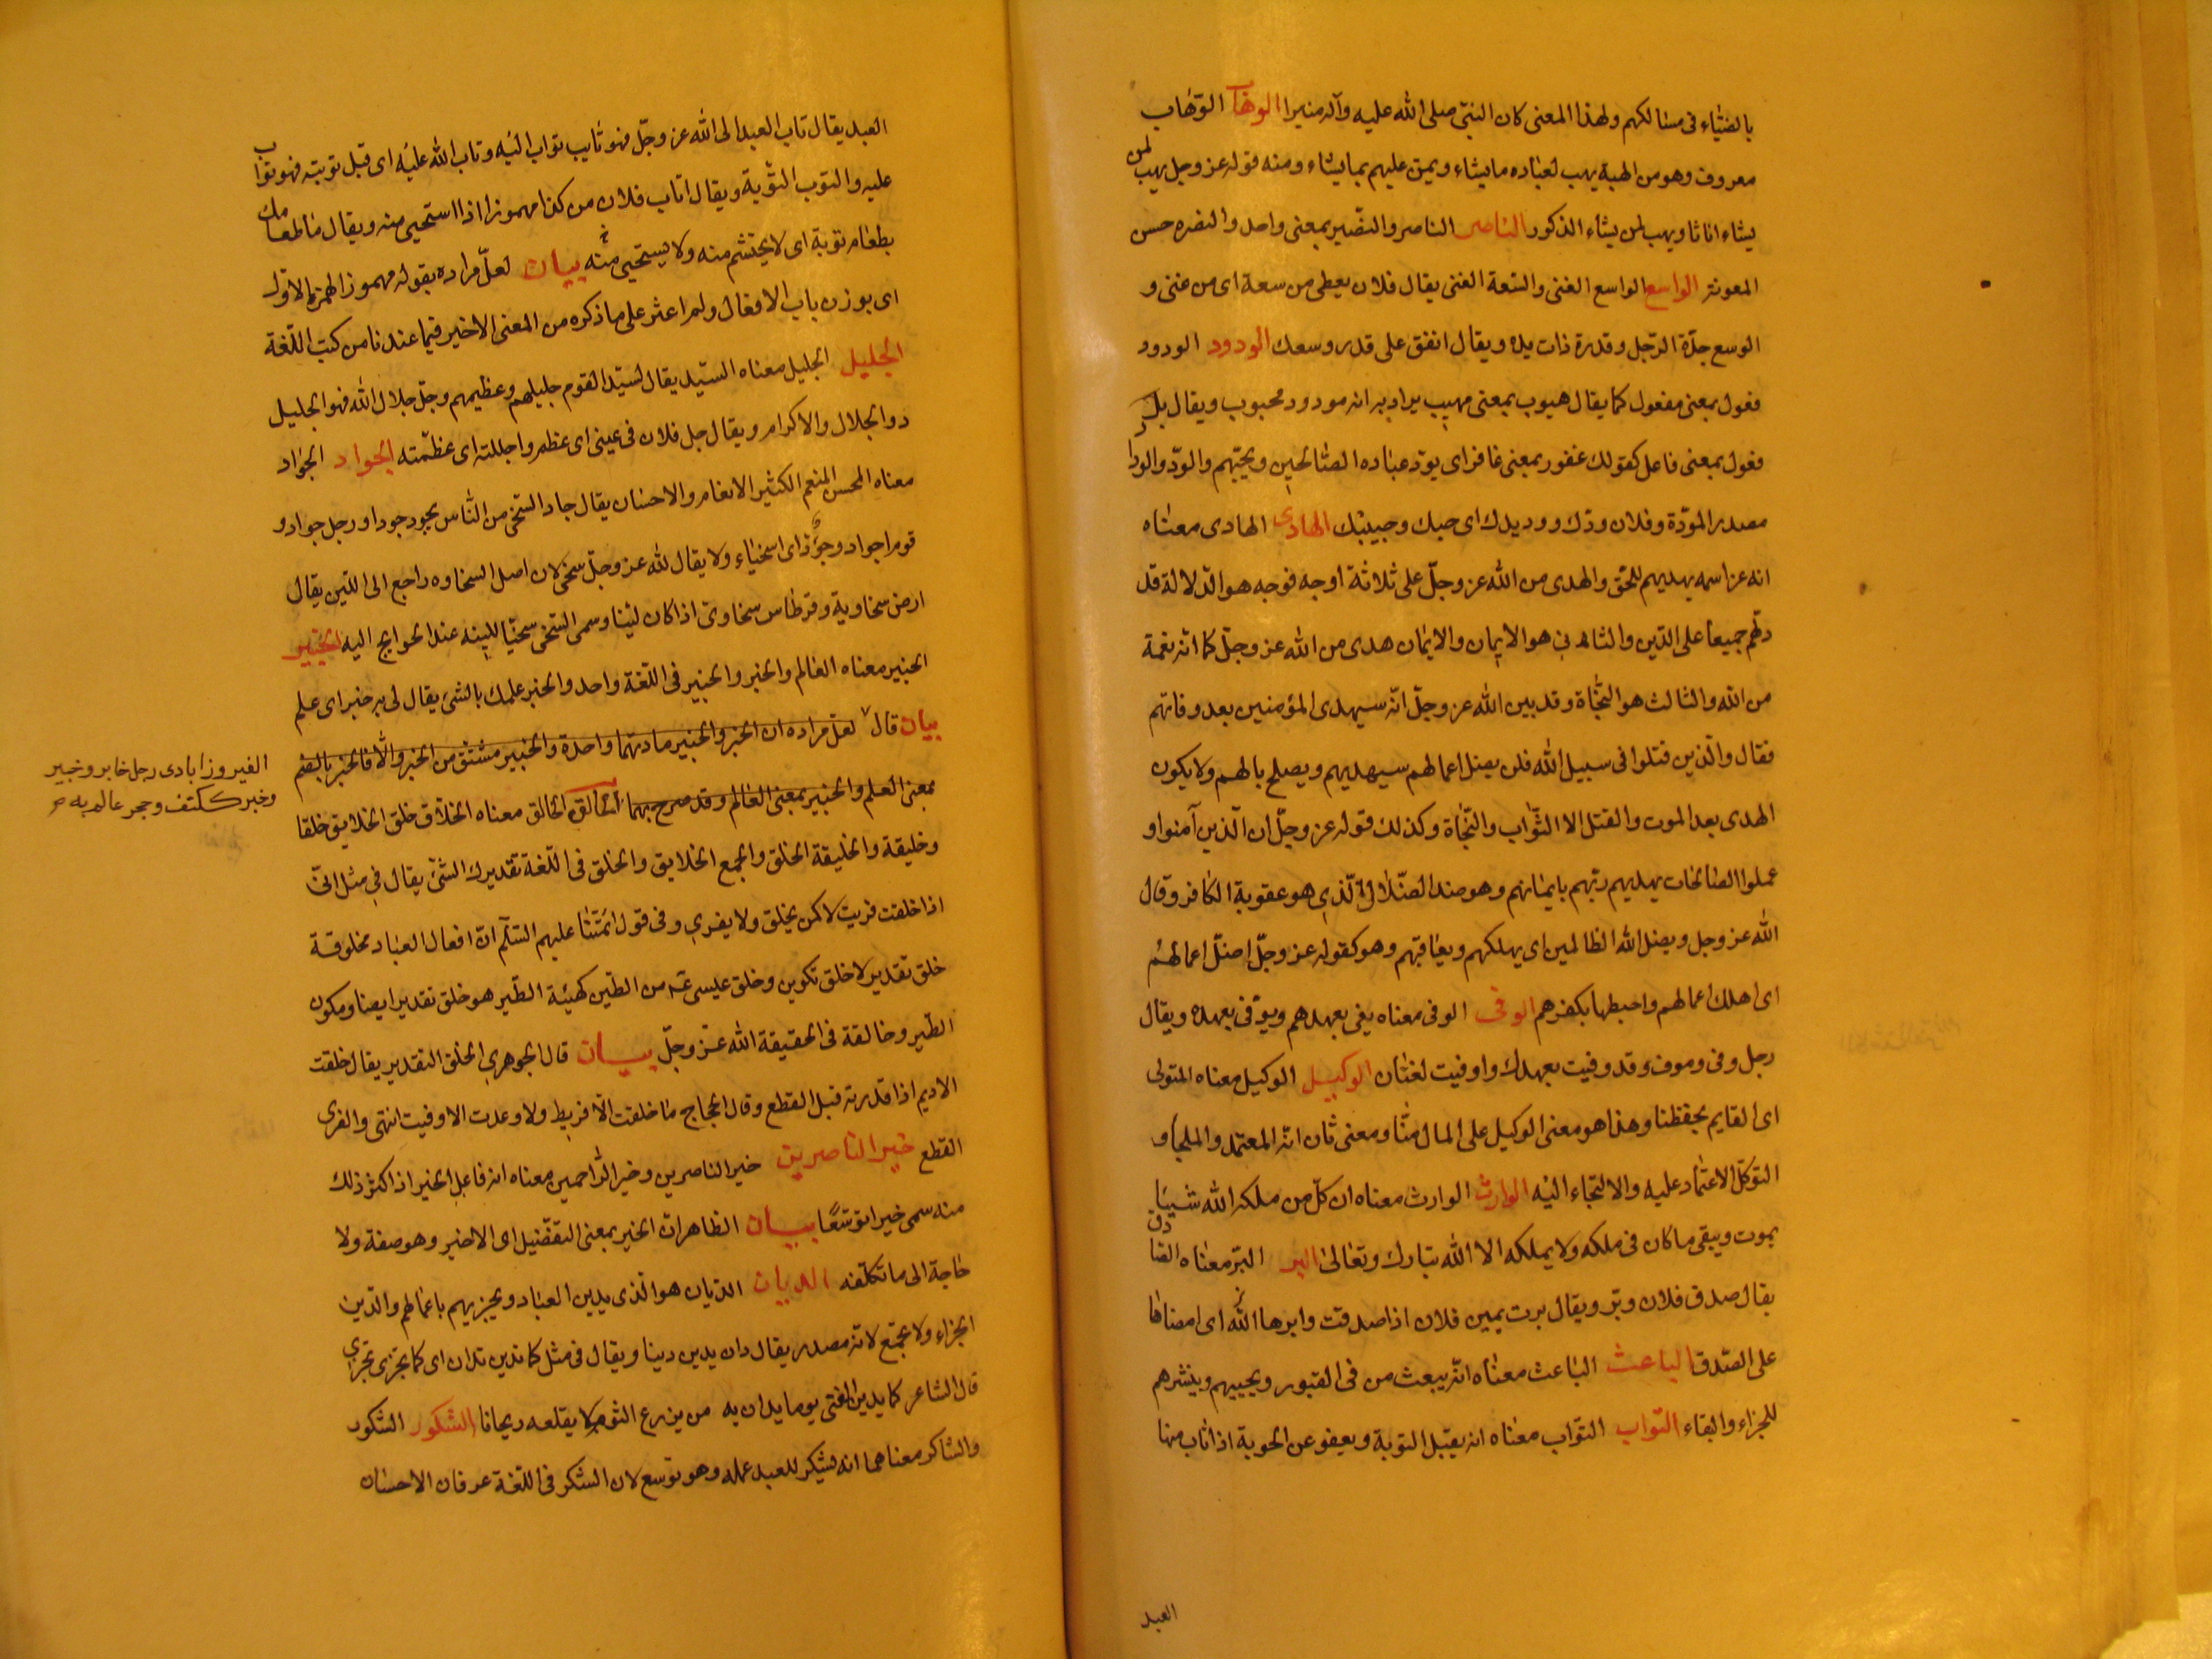 بالضياء فى مسالكهم ولهذا المعنى كان النبى صلى الله عليه وآله منيرا الوهاب الوهاب
معروف وهو من الهبة يهب لعباده ما يشاء ويمن عليهم بما يشاء ومنه قوله عز وجل يهب لمن
يشاء اناثا ويهب لمن يشاء الذكور الناصر الناصر والنصير بمعنى واحد والنصره حسن
المعونة الواسع الواسع الغنى والسعة الغنى يقال فلان يعطى من سعة اى من غنى و
الوسع جدة الرجل وقدرة ذات يده ويقال انفق على قدر وسعك الودود الودود
فعول بمعنى مفعول كما يقال هيوب بمعنى مهيب يراد به انه مودود محبوب ويقال بل
فعول بمعنى فاعل كقولك غفور بمعنى غافر اى يود عباده الصالحين ويحبهم والود والوداد
مصدر المودة وفلان ودك ووديدك اى حبك وحبيبك الهادى الهادى معناه
انه عز اسمه يهديهم للحق والهدى من الله عز وجل على ثلاثة اوجه فوجه هو الدلالة قد
دلهم جميعا على الدين والثانى هو الايمان والايمان هدى من الله عز وجل كما انه نعمة
من الله والثالث هو النجاة وقد بين الله عز وجل انه سيهدى المؤمنين بعد وفاتهم
فقال والذين قتلوا فى سبيل الله فلن يضل اعمالهم سيهديهم ويصلح بالهم ولا يكون
الهدى بعد الموت والقتل الا الثواب والنجاة وكذلك قوله عز وجل ان الذين آمنوا و
عملوا الصالحات يهديهم ربهم بايمانهم وهو ضد الضلال الذى هو عقوبة الكافر وقال
الله عز وجل ويضل الله الظالمين اى يهلكهم ويعاقبهم وهو كقوله عز وجل اضل اعمالهم
اى اهلك اعمالهم واحبطها بكفرهم الوفى الوفى معناه يفى بعهدهم ويوفى بعهده ويقال
رجل وفى وموف وقد وفيت بعهدك واوفيت لغتان الوكيل الوكيل معناه المتولى
اى القايم بحفظنا وهذا هو معنى الوكيل على المال منا ومعنى ثان انه المعتمد والملجأ و
التوكل الاعتماد عليه والالتجاء اليه الوارث الوارث معناه ان كل من ملكه الله شيئا
يموت ويبقى ما كان فى ملكه ولا يملكه الا الله تبارك وتعالى البر البر معناه الصادق
يقال صدق فلان وبر ويقال برت يمين فلان اذا صدقت وابرها الله اى امضاها
على الصدق الباعث الباعث معناه انه يبعث من فى القبور ويحييهم وينشرهم
للجزاء والبقاء التواب التواب معناه انه يقبل التوبة ويعفو عن الحوبة اذا تاب منها
العبد
العبد يقال تاب العبد الى الله عز وجل فهو تايب تواب اليه وتاب الله عليه اى قبل توبته فهو تواب
عليه والتوب التوبة ويقال اتاب فلان من كذا مهموزا اذا استحيى منه ويقال ما طعامك
بطعام توبة اى لا يحتشم منه ولا يستحيى منه بيان لعل مراده بقوله مهموز الهمزة الاول
اى بوزن باب الافعال ولم اعثر على ما ذكره من المعنى الاخير فيما عندنا من كتب اللغة
الجليل الجليل معناه السيد يقال لسيد القوم جليلهم وعظيمهم وجل جلال الله فهو الجليل
ذو الجلال والاكرام ويقال جل فلان فى عينى اى عظم واجللته اى عظمته الجواد الجواد
معناه المحسن المنعم الكثير الانعام والاحسان يقال جاد السخى من الناس يجود جودا ورجل جواد و
قوم اجواد وجود اى اسخياء ولا يقال لله عز وجل سخى لان اصل السخاوه راجع الى اللين يقال
ارض سخاوية وقرطاس سخاوى اذا كان لينا وسمى السخى سخيا للينه عند الحوايج اليه الخبير
الخبير معناه العالم والخبر والخبير فى اللغة واحد والخبر علمك بالشئ يقال لى به خبر اى علم
بيان قال لعل مراده ان الخبر والخبير مادتهما واحدة والخبير مشتق من الخبر والا فالخبر بالضم
بمعنى العلم والخبير بمعنى العالم وقد صرح بهما الخالق الخالق معناه الخلاق خلق الخلايق خلقا
وخليقة والخليقة الخلق والجمع الخلايق والخلق فى اللغة تقديرك الشئ يقال فى مثل انى
اذا خلقت فريت لا كمن يخلق ولا يفرى وفى قول ائمتنا عليهم السلم ان افعال العباد مخلوقة
خلق تقدير لا خلق تكوين وخلق عيسى من الطين كهيئة الطير هو خلق تقدير ايضا ومكون
الطير وخالقة فى الحقيقة الله عز وجل بيان قال الجوهرى الخلق التقدير يقال خلقت
الاديم اذا قدرته قبل القطع وقال الحجاج ما خلقت الا فريت ولا وعدت الا وفيت انتهى والفرى
القطع خير الناصرين خير الناصرين وخير الراحمين معناه ان فاعل الخير اذا كثر ذلك
منه سمى خيرا توسعا بيان الظاهر ان الخير بمعنى التفضيل اى الاخير وهو صفة ولا
حاجة الى ما تكلفه الديان الديان هو الذى يدين العباد ويجزيهم باعمالهم والدين
الجزاء ولا يجمع لانه مصدر يقال دان يدين دينا ويقال فى مثل كما تدين تدان اى كما تجزى تجزى
قال الشاعر كما يدين الفتى يوما يدان به من يزرع الثوم لا يقلعه ريحانا الشكور الشكور
والشاكر معناهما انه يشكر للعبد عمله وهو توسع لان الشكر فى اللغة عرفان الاحسان
الفيروزابادى رجل خابر وخبير
وخبر ككتف وحجر عالم به